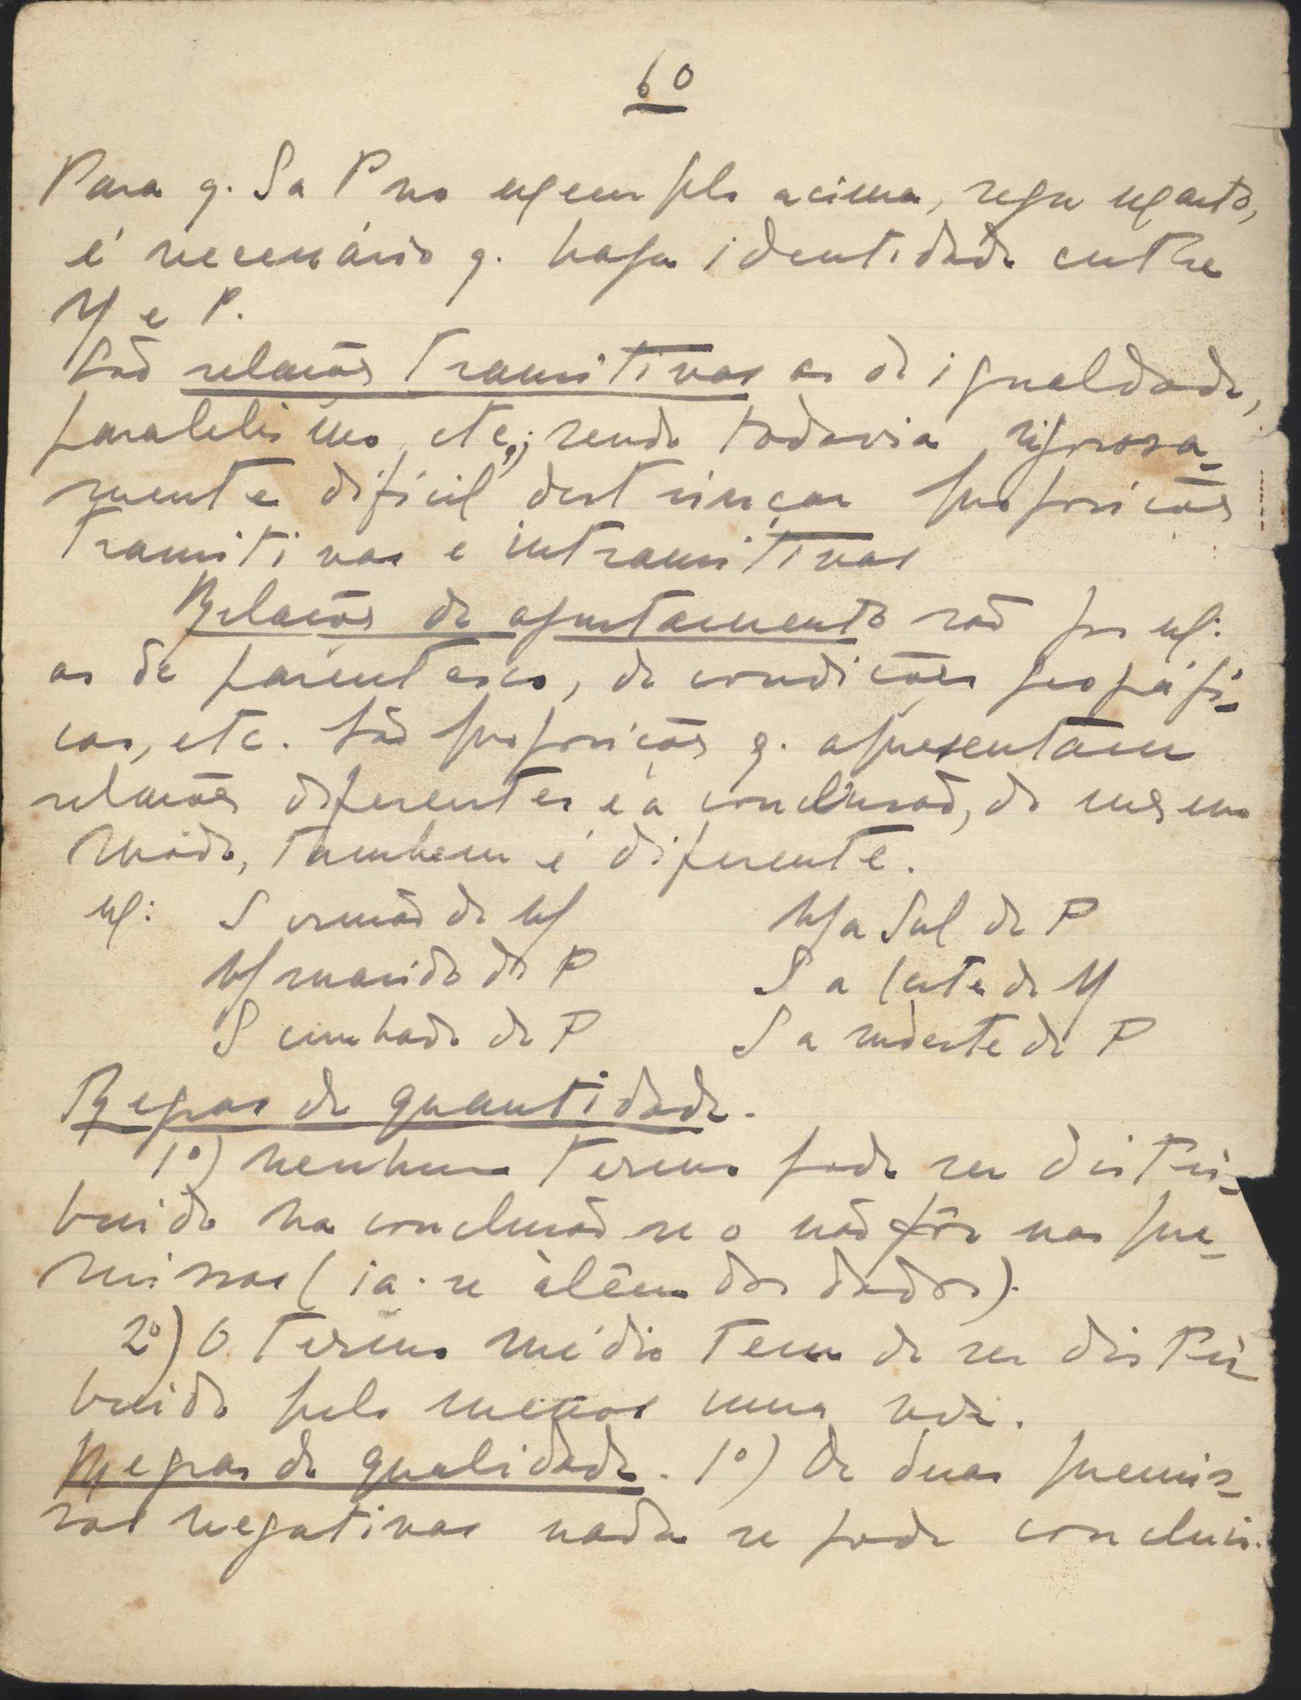 60
Para q. S a P no exemplo acima, seja exacto,
é necessário q. haja identidade entre
M e P.
São relacões transitivas as de igualdade,
paralelismo, etc,; sendo todavia rigorosa-
mente difícil destrinçar proposicões
transitivas e intransitivas
Relacões de ajustamento são por ex:
as de parentesco, de condicões geográfi-
cas, etc. São proposicões q. apresentam
relacões diferentes e a conclusão, do mesmo
modo, tambem é diferente.
ex: S irmão de M
M marido de P
S cunhado de P
M a Sul de P
S a leste de M
S a sudeste de P
Regras de quantidade.
1º) nenhum termo pode ser distri-
buido na conclusão se o não fôr nas pre-
missas (ia-se àlêm dos dados).
2º) O termo médio tem de ser distri-
buido pelo menos uma vez.
Regras de qualidade. 1º) De duas premis-
sas negativas nada se pode concluir.